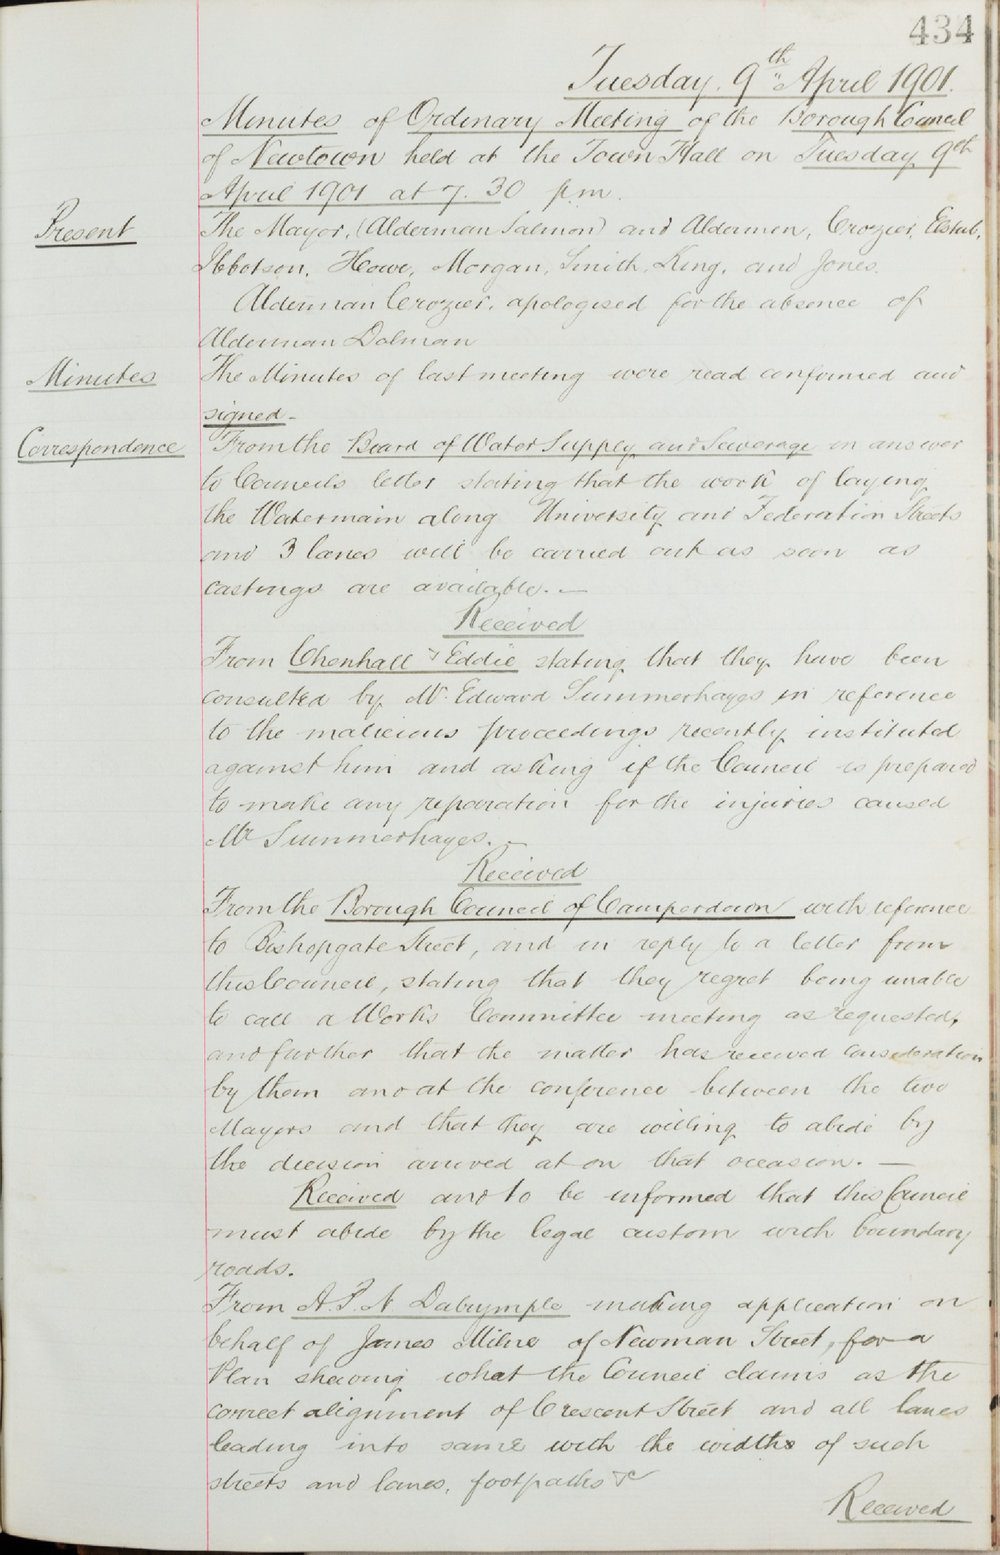 434
Tuesday. 9th April 1901.
Minutes of Ordinary Meeting of the Borough Council
of Newtown held at the Town Hall on Tuesday 9th
April 1901 at 7.30 p.m.
Present
The Mayor, (Alderman Salmon) and Aldermen, Crozier,
Ibbotson, Howe, Morgan, Smith, King, and Jones.
Alderman Crozier, apologised for the absence of
Alderman Dolman
Minutes
The Minutes of last meeting were read confirmed and
signed-
Correspondence
From the Board of Water Supply and Sewerage in answer
to Councils letter stating that the work of laying
the Watermain along University and Federation Streets
and 3 lanes will be carried out as soon as
castings are available. —
Received
From Chenhall & Eddie stating that they have been
consulted by Mr. Edward Summerhayes in reference
to the malicious proceedings recently instituted
against him and asking if the Council is prepared
to make any reparation for the injuries caused
Mr Summerhayes. —
Received
From the Borough Council of Camperdown with reference
to Bishopgate Street, and in reply to a letter from
this Council, stating that they regret being unable
to call a Works Committee meeting as requested,
and further that the matter has received consideration
by them and at the conference between the two
Mayors and that they are willing to abide by
the decision arrived at on that occasion. —
Received and to be informed that this Council
must abide by the legal custom with boundary
roads.
From A. P. N Dalrymple making application on
behalf of James Milne of Newman Street, for a
Plan shewing what the Council claims as the
correct alignment of Crescent Street and all lanes
leading into same with the widths of such
streets and lanes, footpaths &c
Received